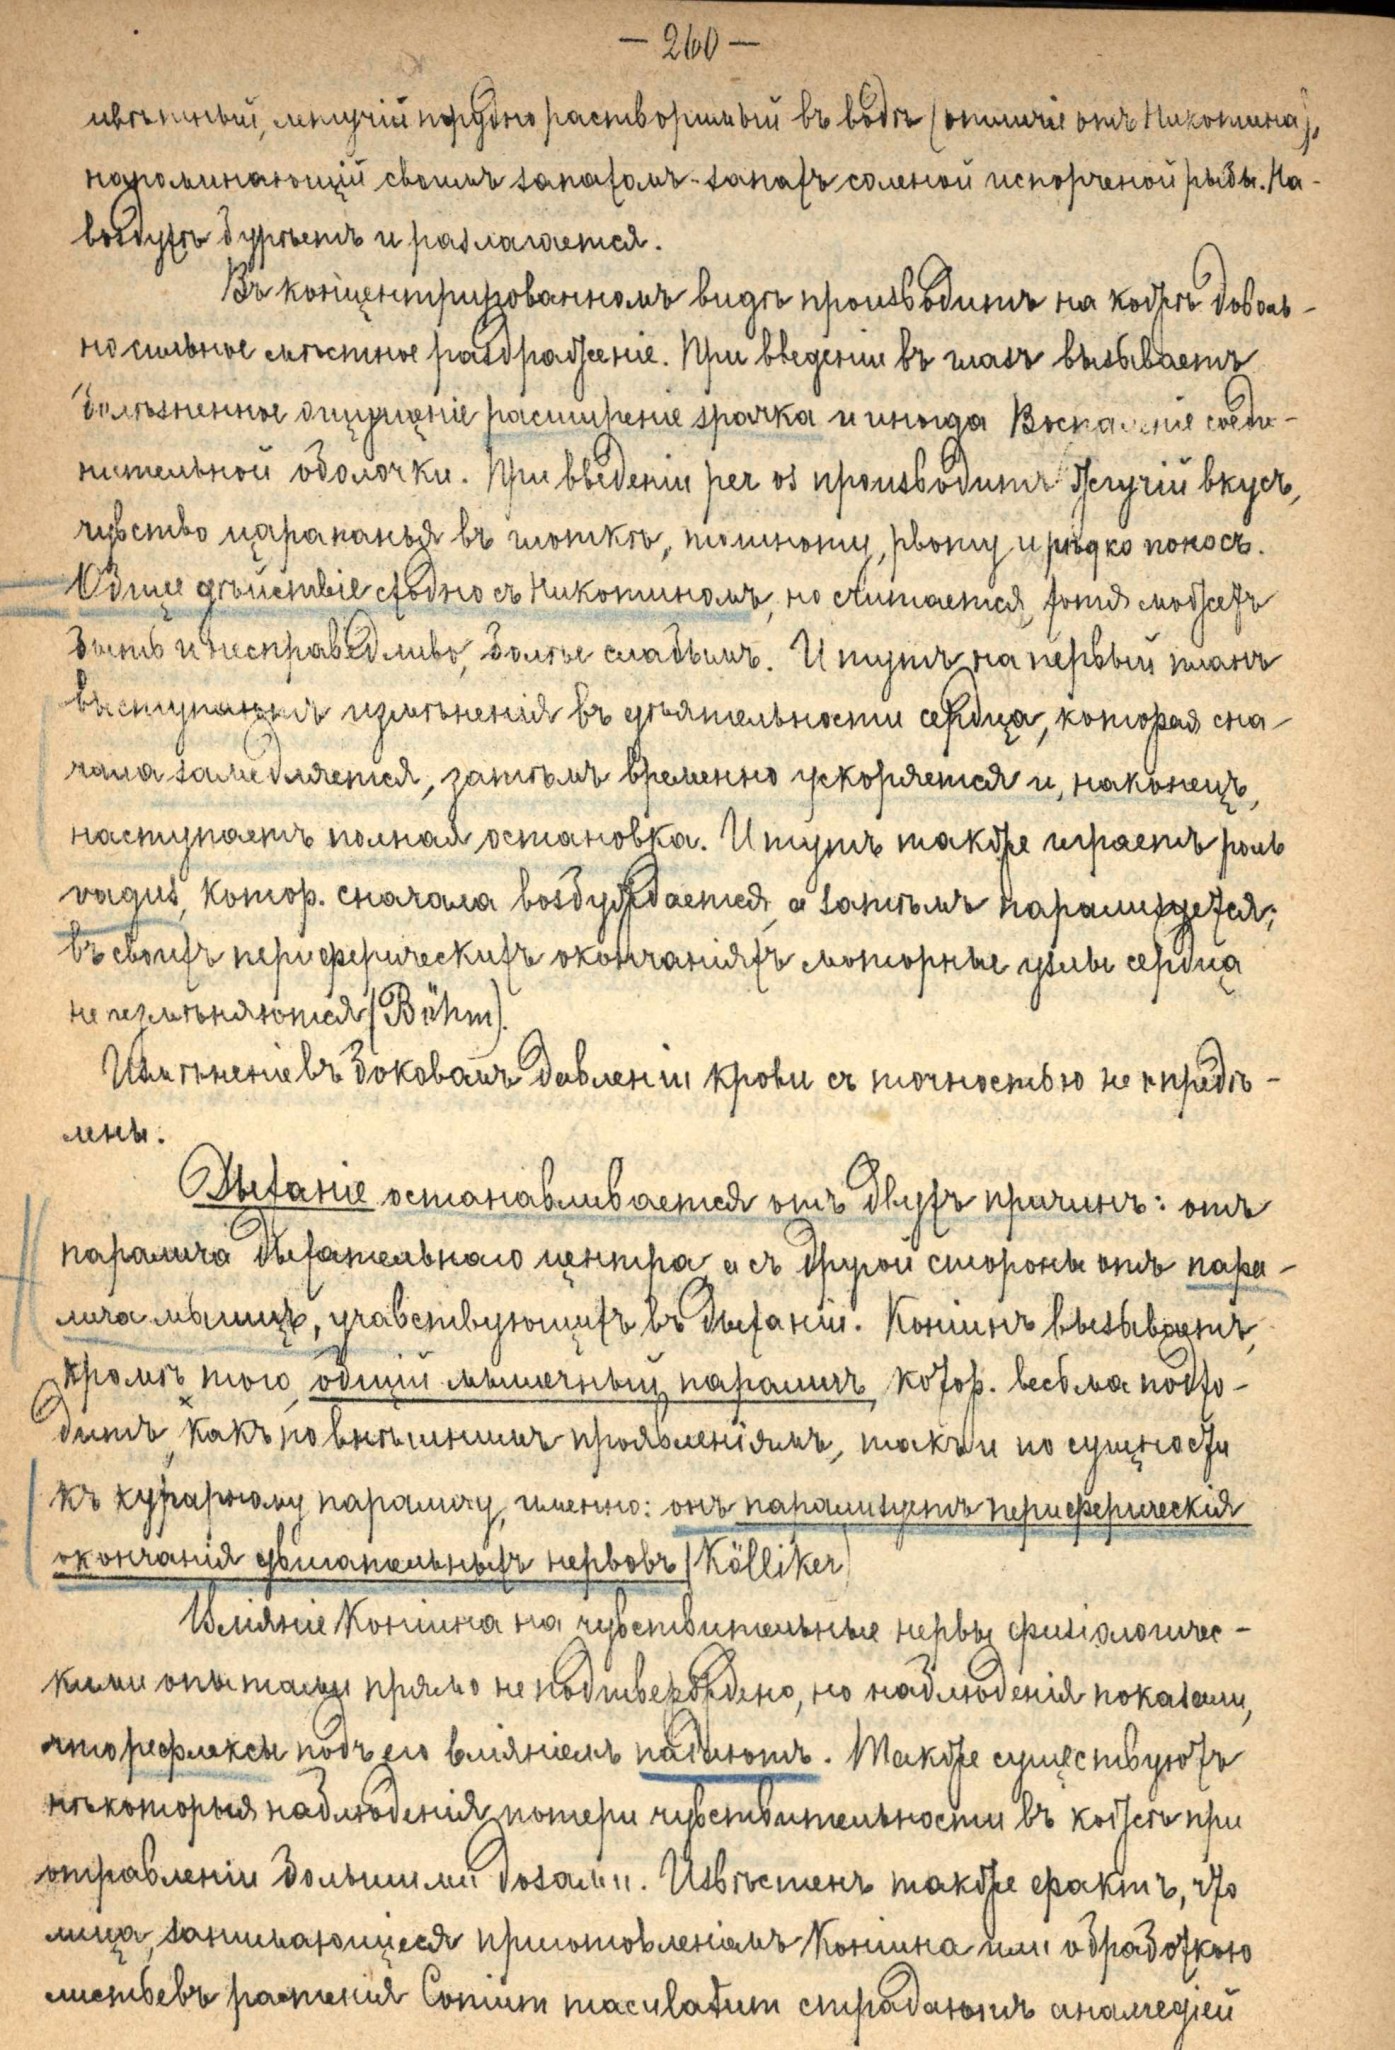 — 260 —
цвѣтный, летучій трудно растворимый въ водѣ (отличіе отъ Никотина),
напоминающій своимъ запахомъ - запахъ соленой испорченой рыбы. На
воздухѣ бурѣетъ и разлагается.
Въ концентрированномъ видѣ производитъ на кожѣ доволь-
но сильное мѣстное раздраженіе. При введеніи въ глазъ вызываетъ
болѣзненное ощущеніе расширеніе зрачка и иногда Воспаленіе соеди-
нительной оболочки. При введеніи per os производитъ жгучій вкусъ,
чувство царапанья въ глоткѣ, тошноту, рвоту и рѣдко поносъ.
Общее дѣйствіе сходно съ Никотиномъ, но считается, хотя можетъ
быть и несправедливо, болѣе слабымъ. И тутъ на первый планъ
выступаютъ измѣненія въ дѣятельности сердца, которая сна-
чала замедляется, затѣмъ временно ускоряется и, наконецъ,
наступаетъ полная остановка. И тутъ также играетъ роль
vagus, котор. сначала возбуждается, а затѣмъ парализуется;
въ своихъ периферическихъ окончаніяхъ моторные узлы сердца
не измѣняются (Böhm).
Измѣненіе въ боковомъ давленіи крови съ точностью не опредѣ-
лены.
Дыханіе останавливается отъ двухъ причинъ: отъ
паралича дыхательнаго центра, а съ другой стороны отъ пара-
лича мышцъ, учавствующихъ въ дыханіи. Коніинъ вызываетъ,
кромѣ того, общій мышечный параличъ, котор. весьма подхо-
дитъ, какъ по внѣшнимъ проявленіямъ, такъ и по сущности
къ курарному параличу, именно: онъ парализуетъ периферическія
окончанія двигательныхъ нервовъ (Kölliker)
Вліяніе Коніина на чувствительные нервы физіологичес-
кими опытами прямо не подтверждено, но наблюденія показали,
что рефлексы подъ его вліяніемъ падаютъ. Также существуютъ
нѣкоторыя наблюденія потери чувствительности въ кожѣ при
отравленіи большими дозами. Извѣстенъ также фактъ, что
лица, занимающіеся приготовленіемъ Коніина или обработкою
листьевъ растенія Conium maculatum страдаютъ аналгезіей